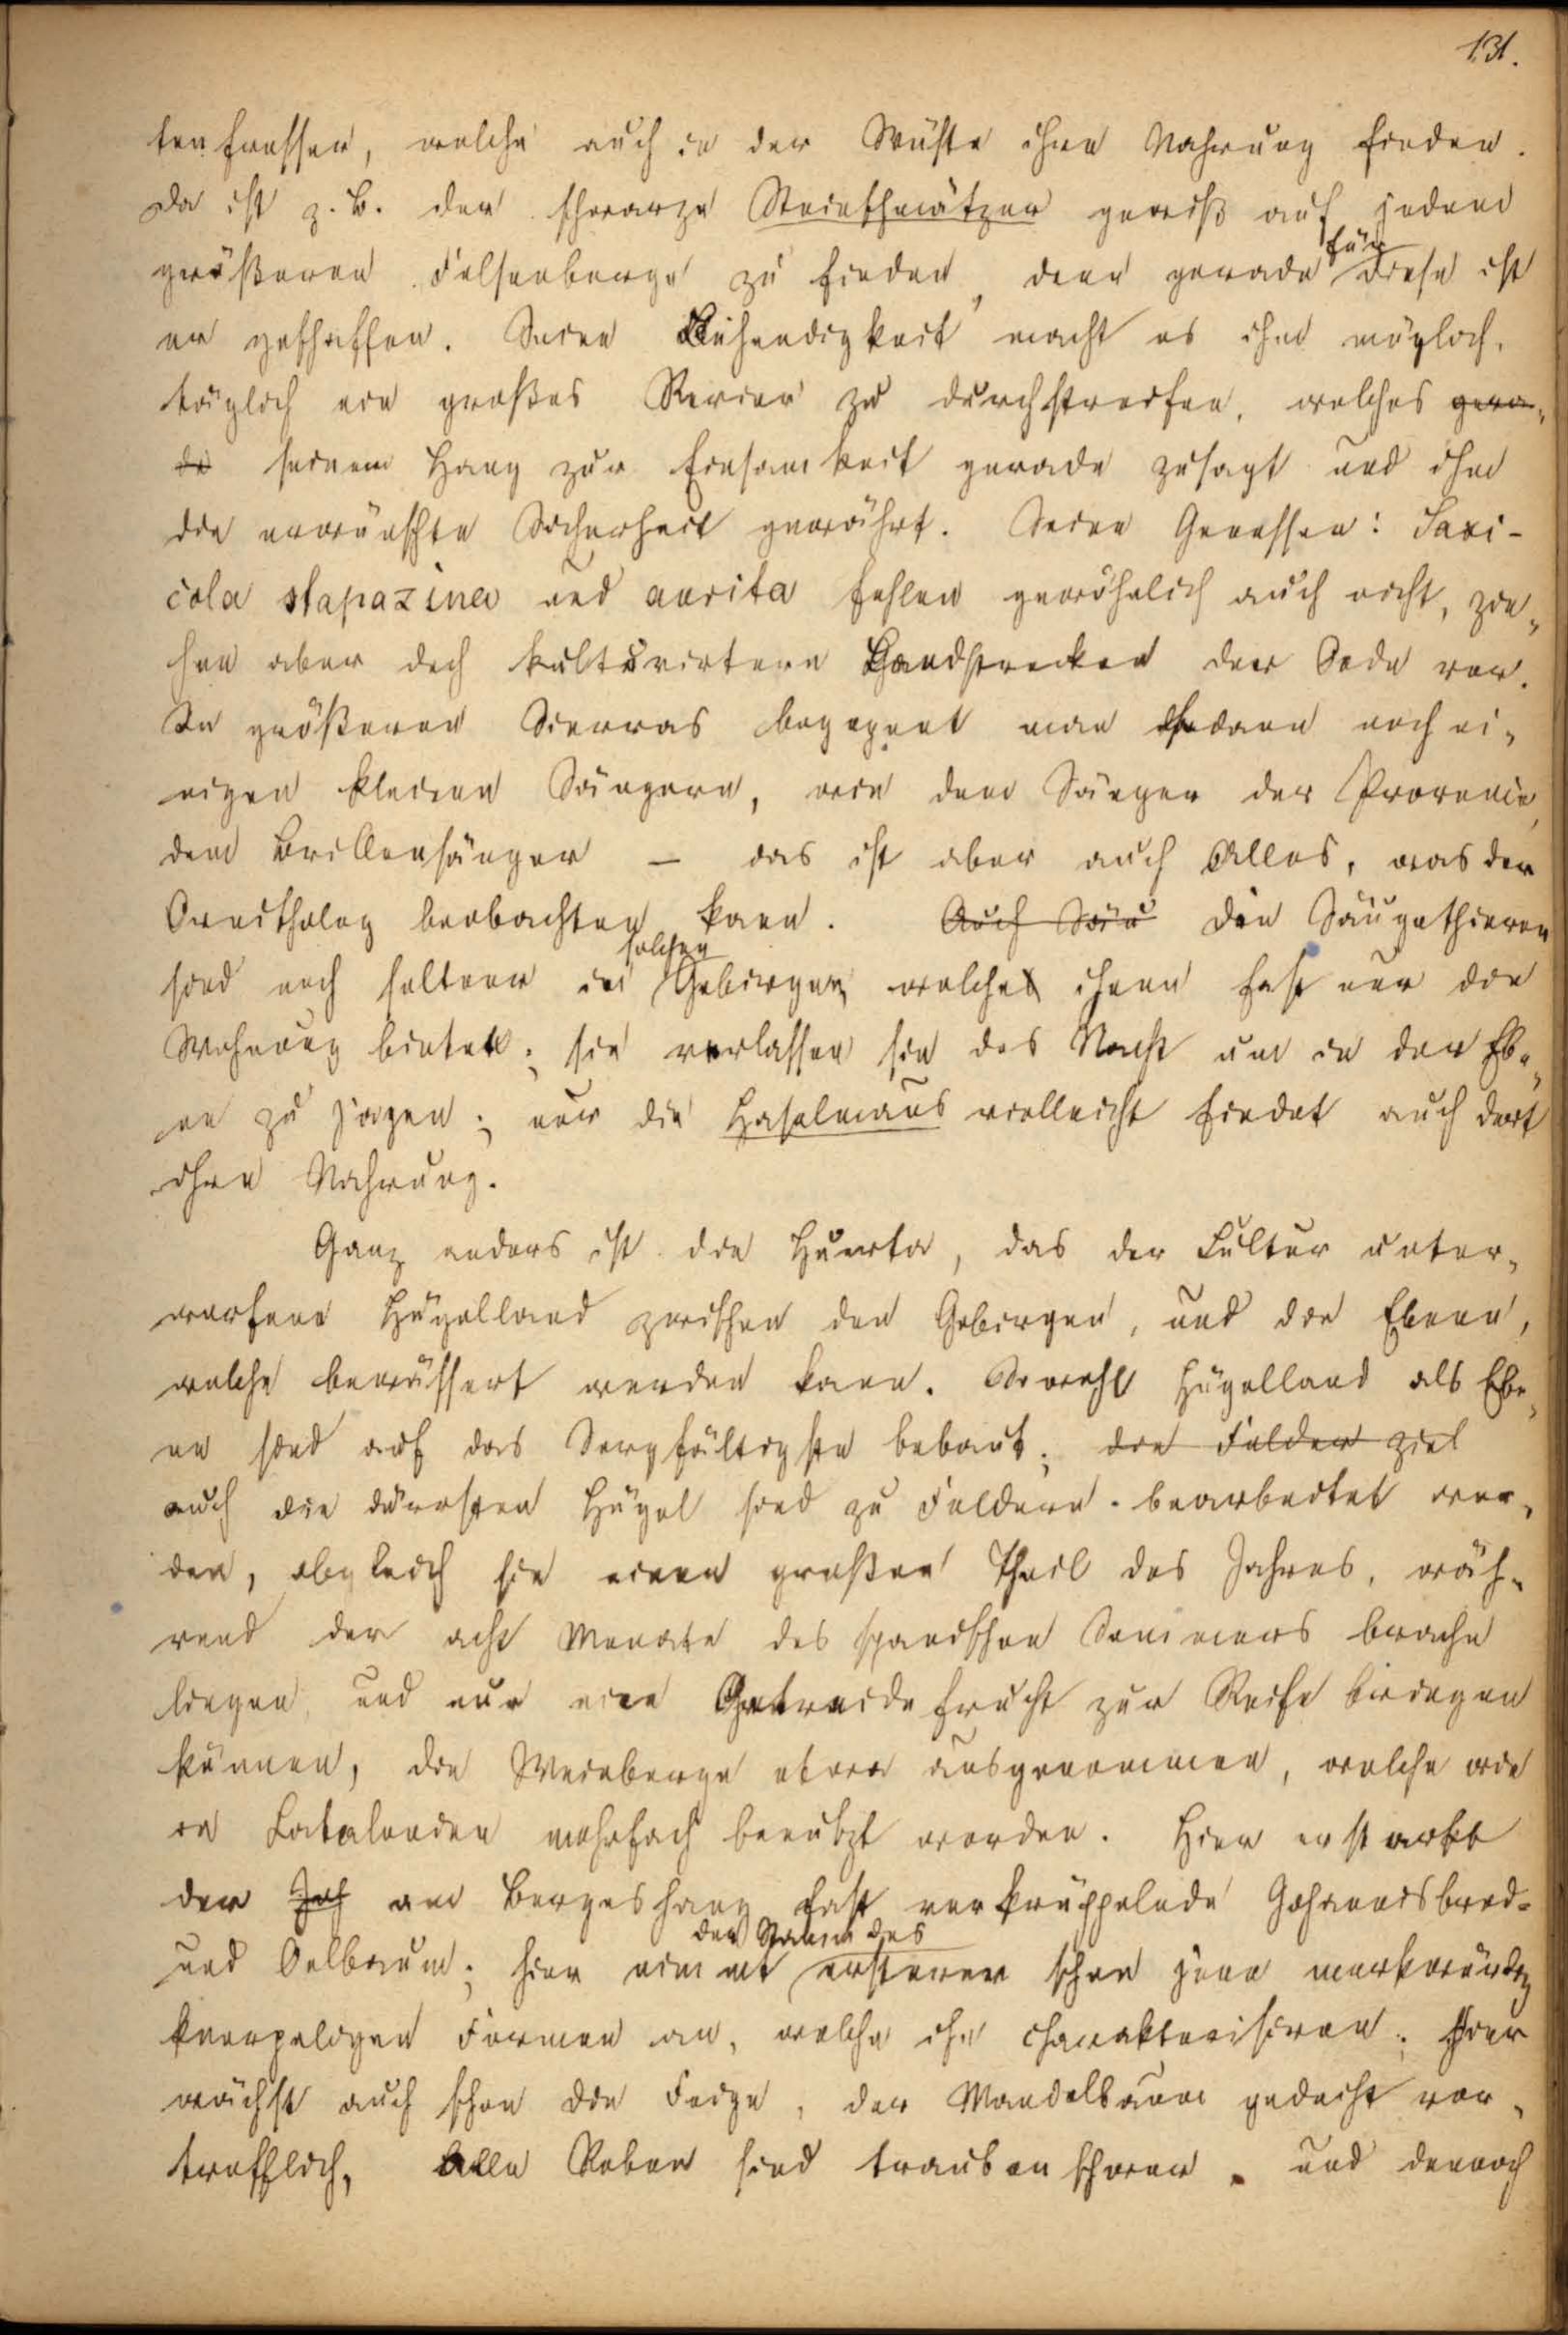 131.
tenfresser, welche auch in der Wüste ihre Nahrung finden.
Da ist z. B. der schwarze Steinschmätzer gewiß auf jedem
größeren Felsenberge zu finden, denn gerade für diese ist
er geschaffen. Seine Behendigkeit macht es ihm möglich,
täglich ein großes Revier zu durchstreifen, welches gera-
de seinem Hang zur Einsamkeit gerade zusagt und ihm
die erwünschte Sicherheit gewährt. Seine Genossen: Saxi-
cola stapazina und aurita fehlen gewöhnlich auch nicht, zie-
hen aber doch kultivirtere Landstrecken der Oede vor.
In größeren Sierras begegnet man dann noch ei-
nigen kleinen Sängern, wie dem Sänger der Provence,
dem Brillensänger – das ist aber auch Alles, was der
Ornitholog beobachten kann. Auch Säu Die Säugethiere
sind noch seltner in solchen Gebirgen, welches ihnen fast nur die
Wohnung bietet; sie verlassen sie des Nachts um in der Ebe-
ne zu jagen; nur die Haselmaus vielleicht findet auch dort
ihre Nahrung.
Ganz anders ist die Huerta, das der Kultur unter-
worfene Hügelland zwischen den Gebirgen, und die Ebene,
welche bewässert werden kann. Sowohl Hügelland als Ebe-
ne sind auf das Sorgfältigste bebaut; die Felder ziel
auch die dürrsten Hügel sind zu Feldern bearbeitet wor-
den, obgleich sie einen großen Theil des Jahres, wäh-
rend der acht Monate des spanischen Sommers brache
liegen und nur eine Getreidefrucht zur Reife bringen
können, die Weinberge etwa ausgenommen, welche wie
in Catalonien mehrfach benutzt werden. Hier erstarkt
der Joh am Bergeshang fast verkrüppelnde Johannisbrod-
und Oelbaum; hier nimmt der Stamm des ersteren schon jene merkwürdig
knorpeligen Formen an, welche ihn charakterisiren; Hier
wächst auch schon die Feige, der Mandelbaum gedeiht vor-
trefflich, alle Reben sind traubenschwer, und dennoch